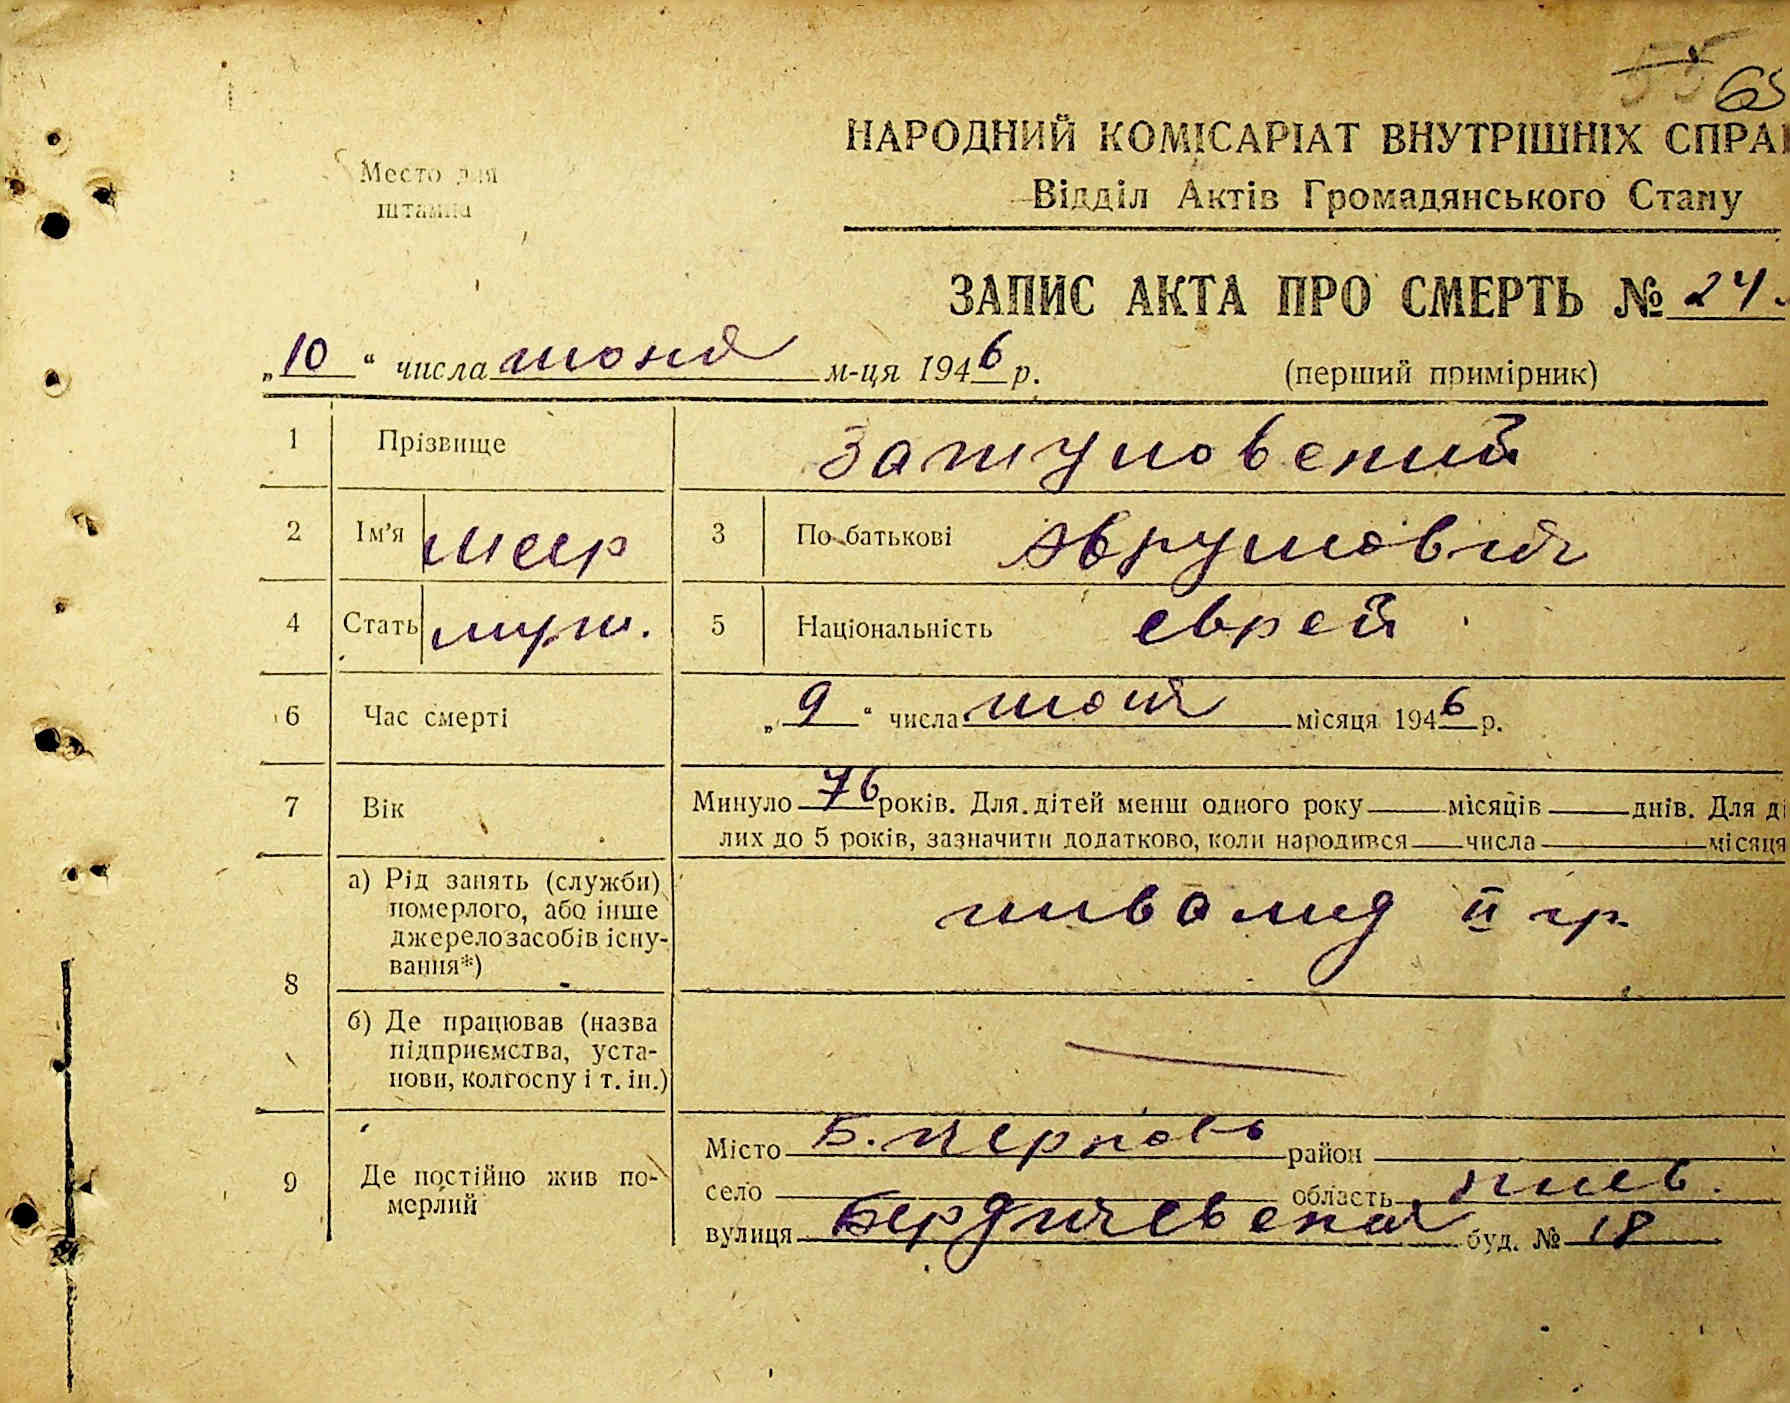 55 65
НАРОДНИЙ КОМІСАРІАТ ВНУТРІШНІХ СПРА
Место для
штампа
Відділ Актів Громадянського Стану
ЗАПИС АКТА ПРО СМЕРТЬ № 24
„10“ числа июня м-ця 1946 р. (перший примірник)
1 Прізвище Затуловский
2 Ім’я Меер 3 По батькові Аврумович
4 Стать муж. 5 Національність еврей
6 Час смерті „9“ числа июня місяця 1946 р.
7 Вік Минуло 76 років. Для дітей менш одного року місяців днів. Для ді
лих до 5 років, зазначити додатково, коли народився числа місяця
8 а) Рід занять (служби) померлого, або інше джерело засобів існу-вання*) инвалид II гр.
б) Де працював (назва підприємства, уста-нови, колгоспу і т. ін.) —
9 Де постійно жив по-мерлий
Місто Б. Церковь район
село область Киев.
вулиця Бердичевская буд. № 18